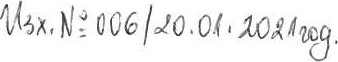 Изх. № 006/20.01.2021 год.